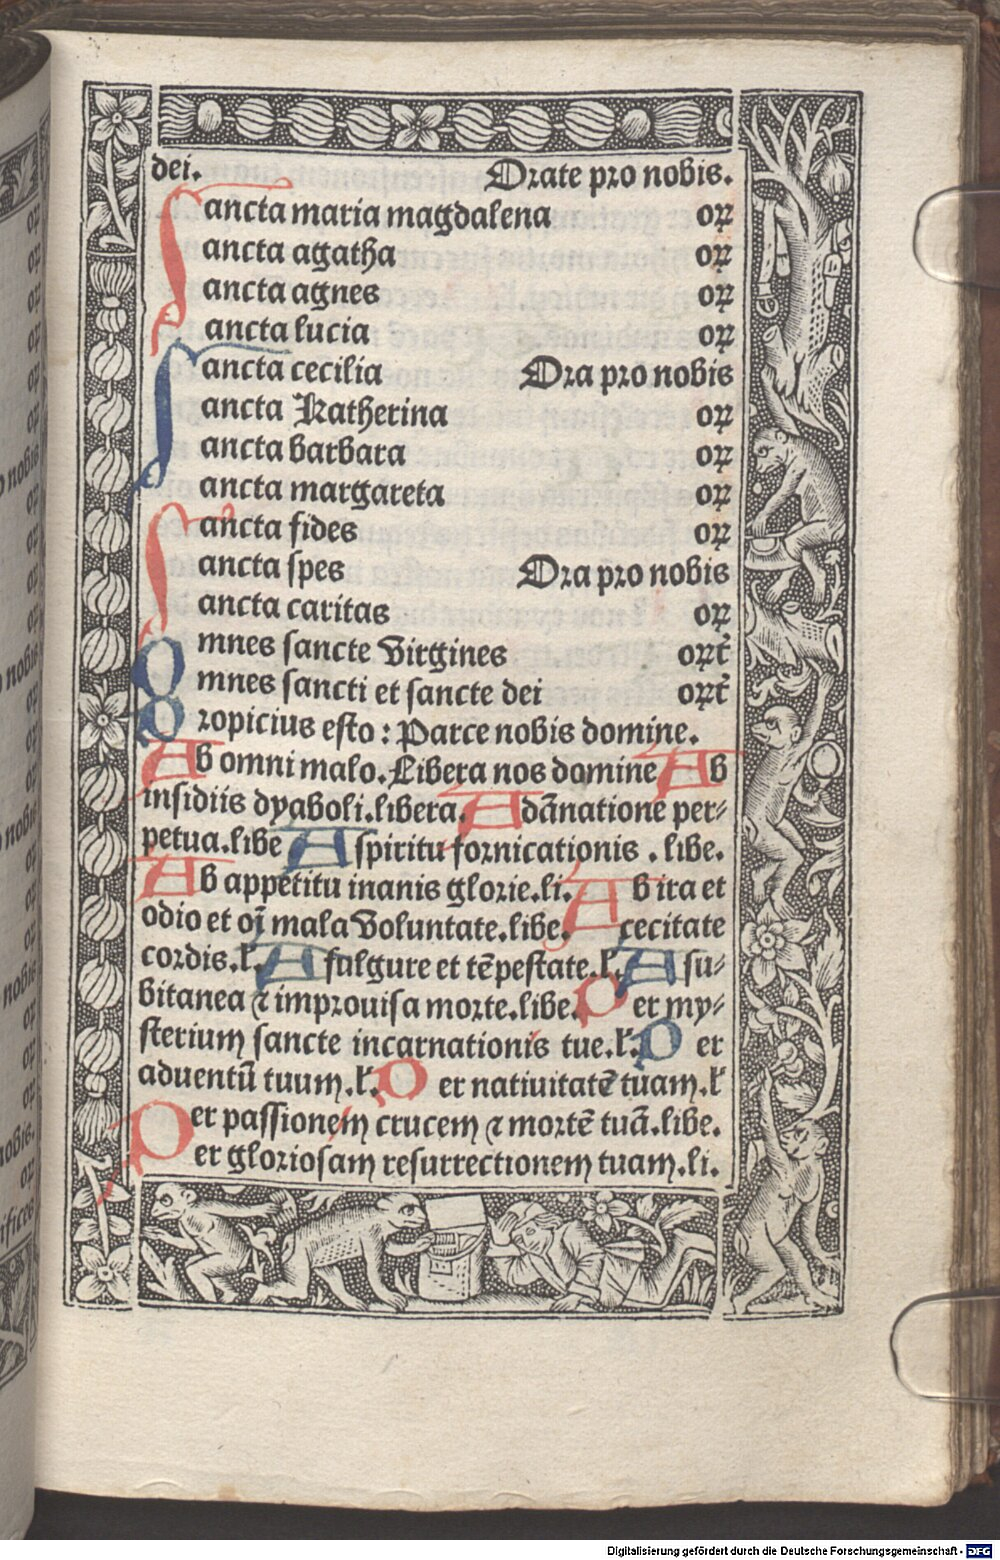 dei. Orate pro nobis.
Sancta maria magdalena oꝝ
Sancta agatha oꝝ
Sancta agnes oꝝ
Sancta lucia oꝝ
Sancta cecilia Ora pro nobis
Sancta Katherina oꝝ
Sancta barbara oꝝ
Sancta margareta oꝝ
Sancta fides oꝝ
Sancta spes Ora pro nobis
Sancta caritas oꝝ
Omnes sancte Virgines orat̄
Omnes sancti et sancte dei orat̄
Propicius esto: Parce nobis domine.
Ab omni malo. Libera nos domine Ab
insidiis dyaboli. libera. A dānatione per-
petua. libe A spiritu fornicationis. libe.
Ab appetitu inanis glorie. li. Ab ira et
odio et oī mala Voluntate. libe. A cecitate
cordis. l̓. A fulgure et tēpestate. l̓. A su-
bitanea ⁊ improuisa morte. libe. Per my-
sterium sancte incarnationis tue. l̓. Per
aduentū tuum. l̓. Per natiuitatē tuam. l̓
Per passionem crucem ⁊ mortē tuā. libe.
Per gloriosam resurrectionem tuam. li.
Digitalisierung gefördert durch die Deutsche Forschungsgemeinschaft - DFG